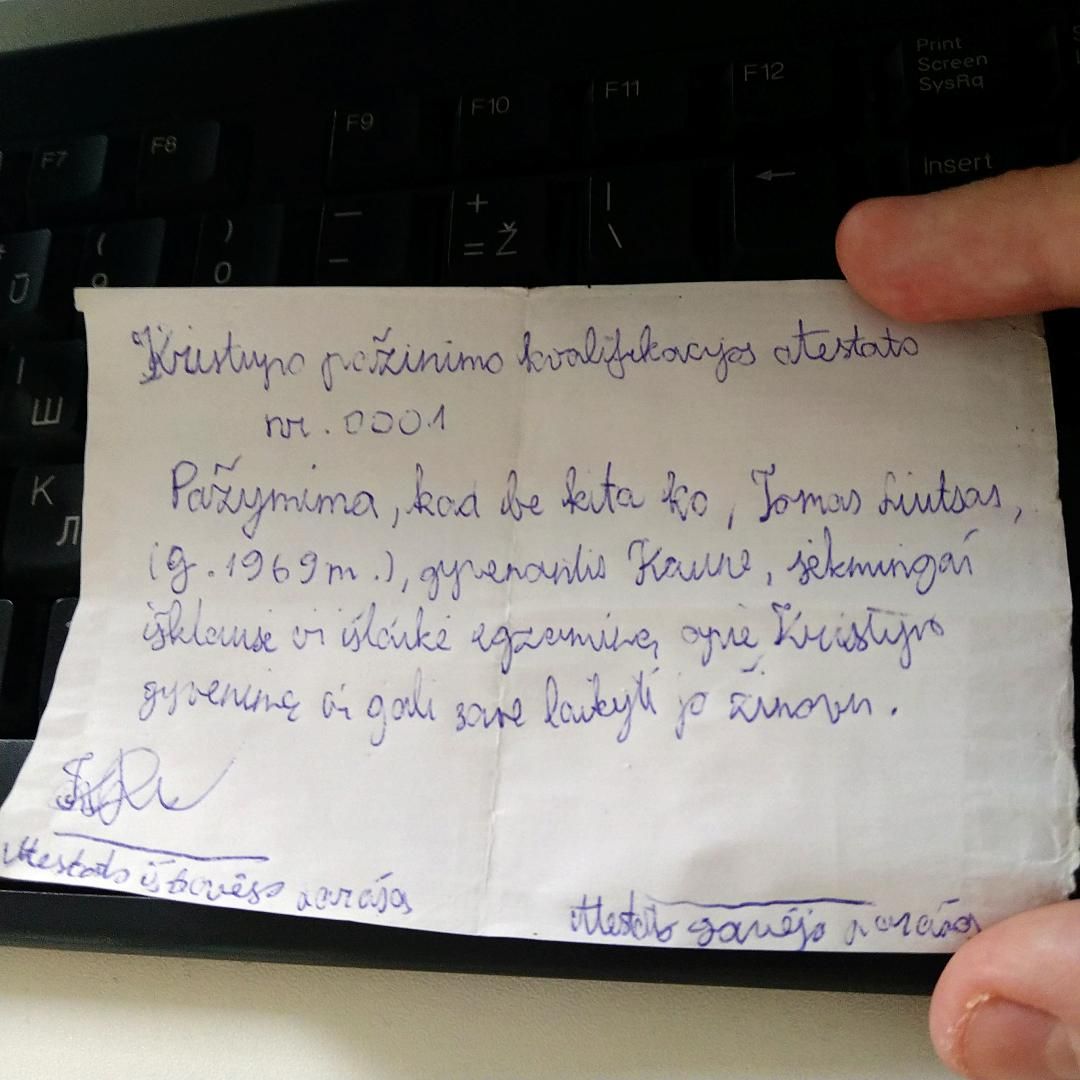 Print
Screen
SysRq
F12
F11
F10
F9
F8
F7
Insert
←
|
\
+
= Ž
—
–
)
0
(
9
Ū
I
Ш
K
Л
Kristupo pažinimo kvalifikacijos atestato
nr. 0001
Pažymima, kad be kita ko, Tomas Liutsas,
(g. 1969 m.), gyvenantis Kaune, sėkmingai
išklausė ir išlaikė egzaminą apie Kristupo
gyvenimą ir gali save laikyti jo žinovu.
Atestato išdavėjo parašas
Atestato gavėjo parašas